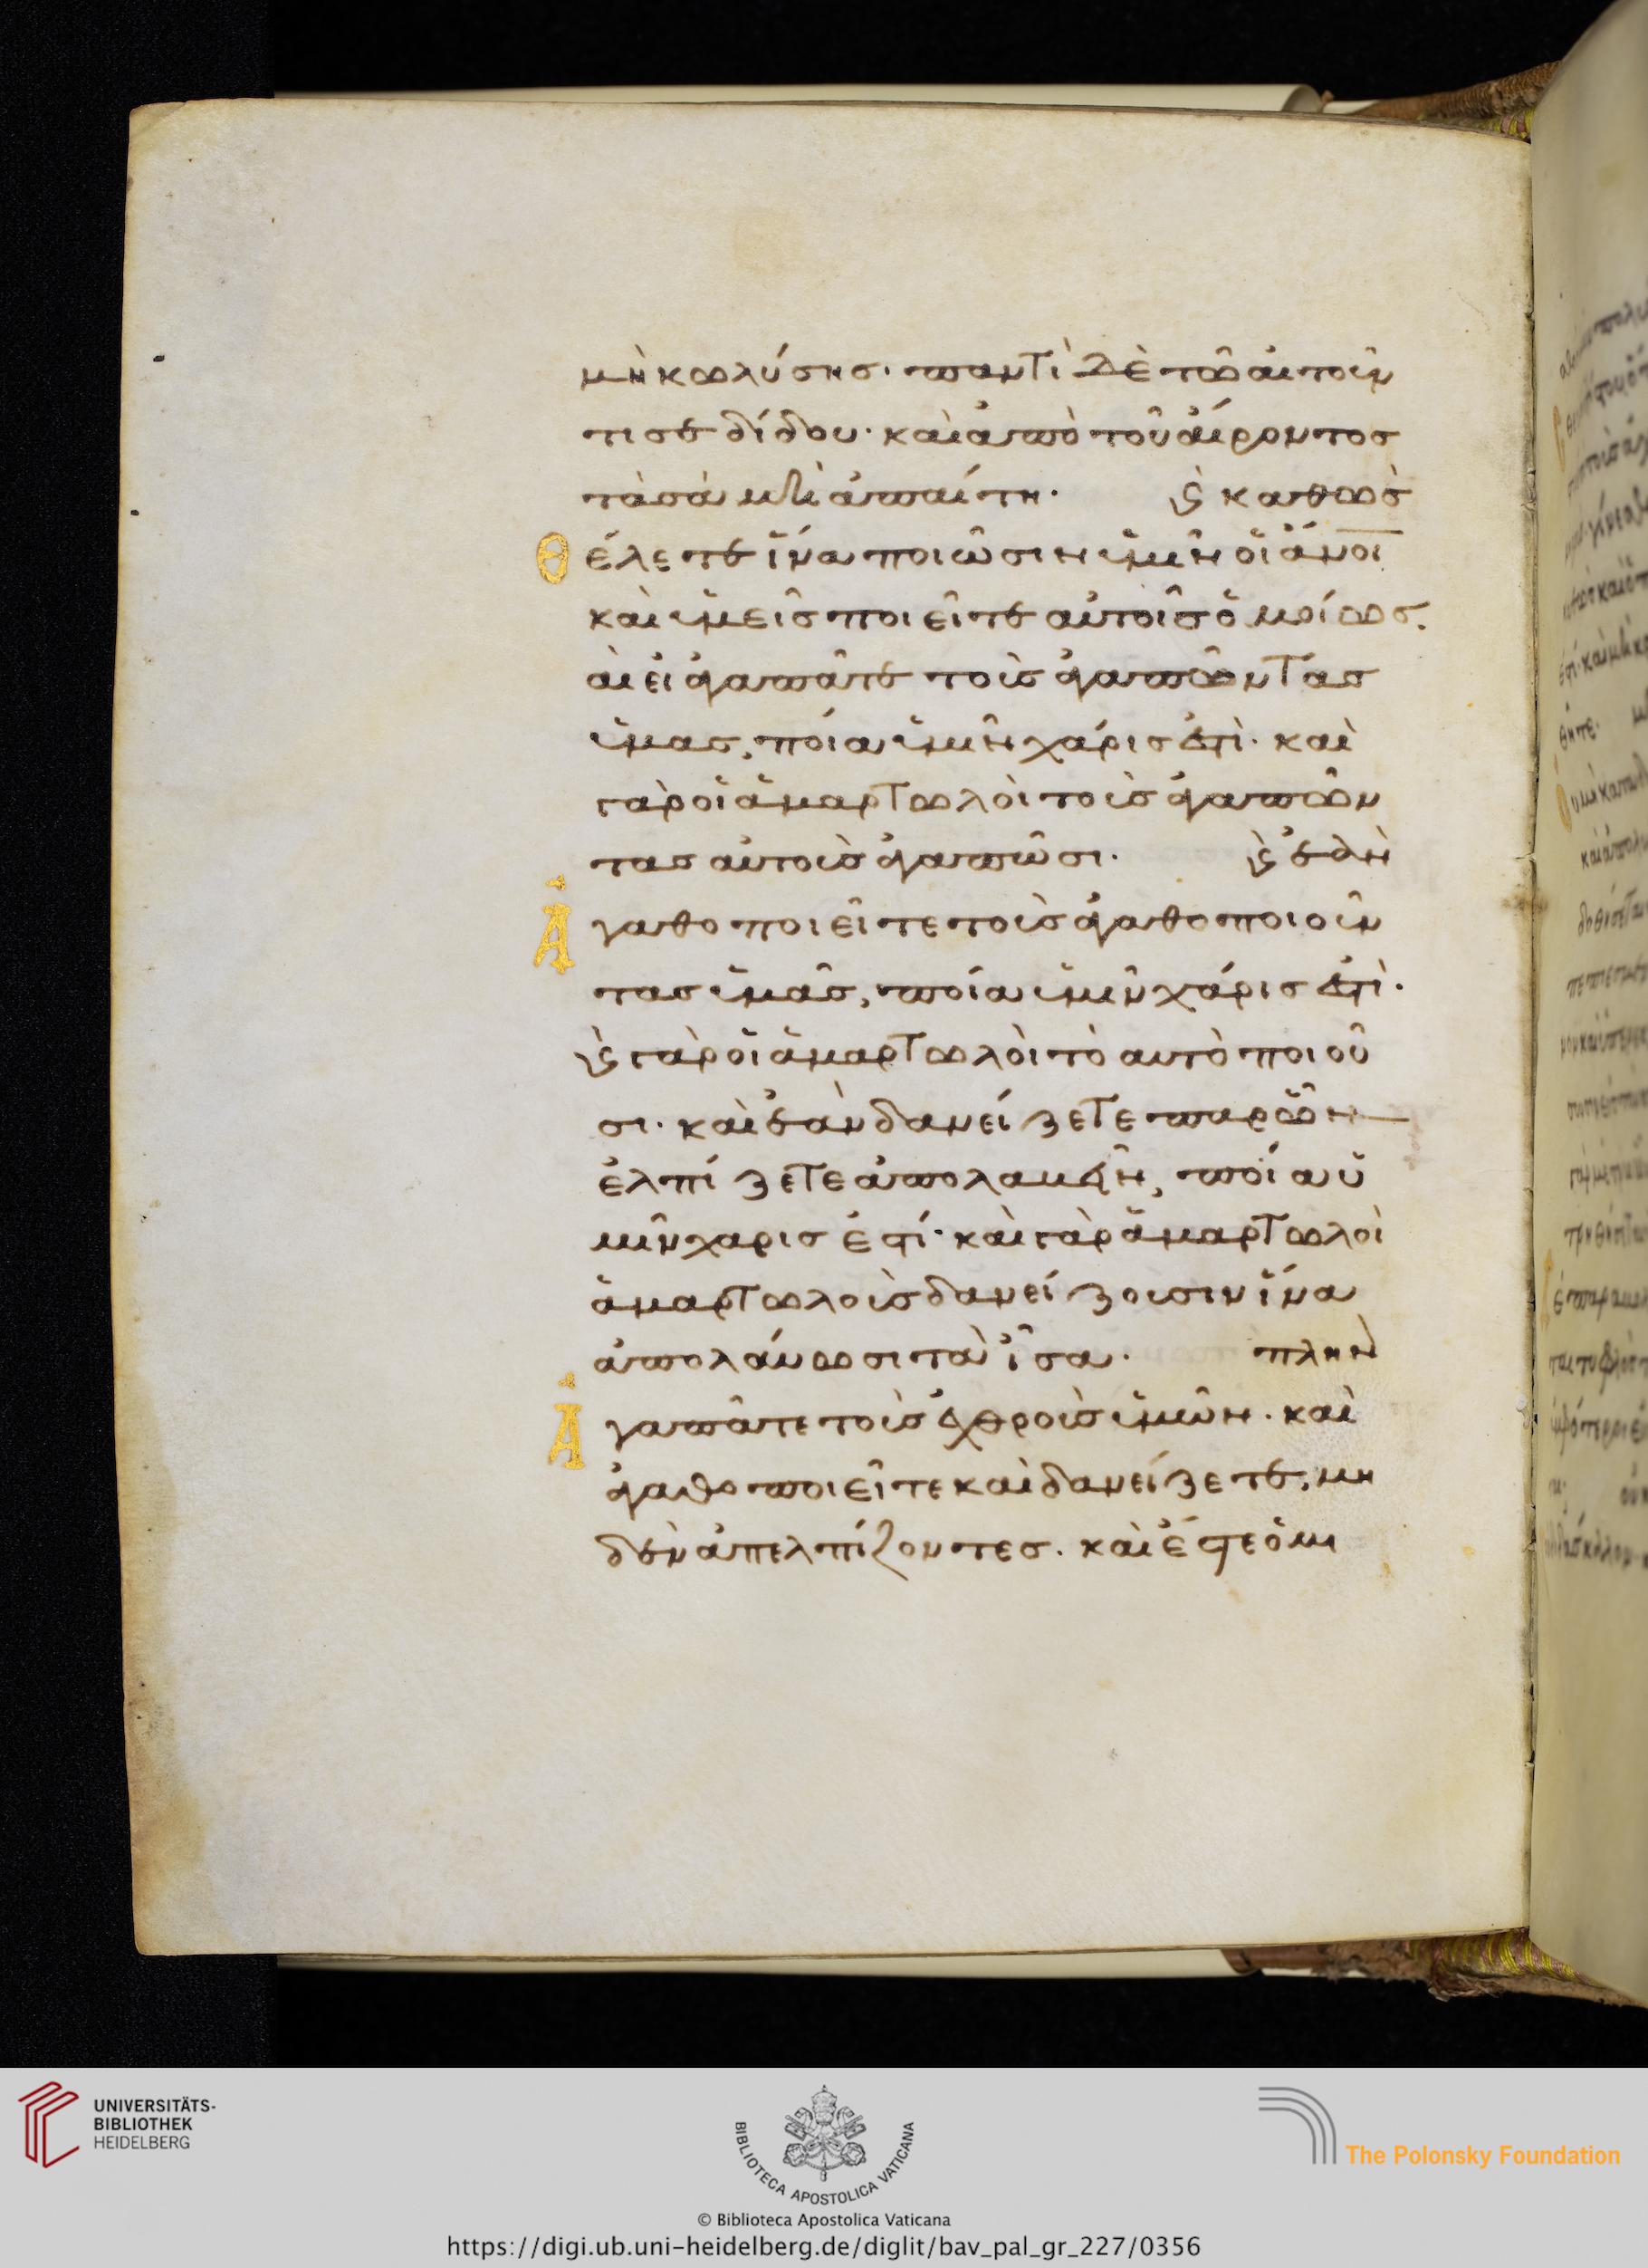 μὴ κωλύσης. παντὶ δὲ τῶ αἰτοῦν
τι σε δίδου. καὶ ἀπὸ τοῦ αἴροντος
τὰ σὰ μὴ ἀπαίτη. ϗ καθὼς
Θέλετε ἵνα ποιῶσιν ὑμῖν οἱ ἄνοι
καὶ ὑμεῖς ποιεῖτε αὐτοῖς ὁμοίως.
αὶ εἰ ἀγαπᾶτε τοὺς ἀγαπῶντας
ὑμας, ποία ὑμῖν χάρις ἐστὶ. καὶ
γὰρ οἱ ἁμαρτωλοὶ τοὺς ἀγαπῶν
τας αὐτοὺς ἀγαπῶσι. ϗ ἐὰν
Ἀγαθοποιεῖτε τοὺς ἀγαθοποιοῦν
τας ὑμᾶς, ποία ὑμῖν χάρις ἐστὶ.
ϗ γὰρ οἱ ἁμαρτωλοὶ τὸ αυτὸ ποιοῦ
σι. καὶ ἐὰν δανείζετε παρ ὧν
ἐλπίζετε ἀπολαβεῖν, ποία ὑ
μῖν χαρις ἐστί. καὶ γὰρ ἁμαρτωλοὶ
ἁμαρτωλοὺς δανείζουσιν ἵνα
ἀπολάβωσι τὰ ἶσα. πλὴν
Ἀγαπᾶτε τοὺς ἐχθροὺς ὑμῶν. καὶ
ἀγαθοποιεῖτε καὶ δανείζετε, μη
δὲν ἀπελπίζοντες. καὶ ἔσται ὁ μι
UNIVERSITÄTS-
BIBLIOTHEK
HEIDELBERG
BIBLIOTECA APOSTOLICA VATICANA
The Polonsky Foundation
© Biblioteca Apostolica Vaticana
https://digi.ub.uni-heidelberg.de/diglit/bav_pal_gr_227/0356